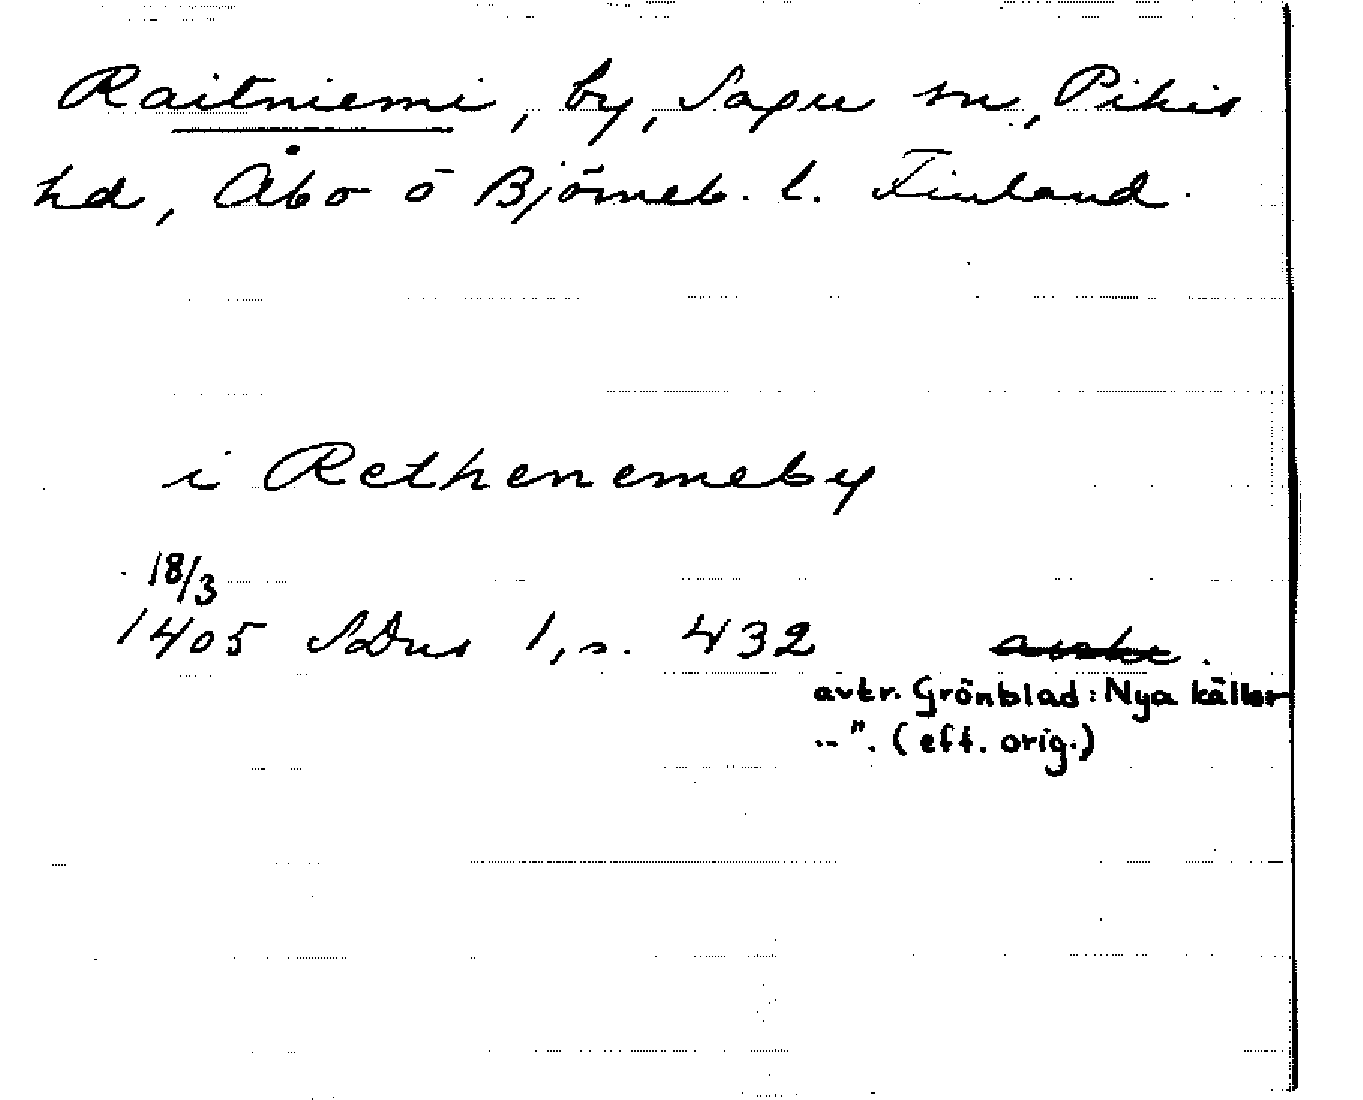 Raitniemi, by, Sagu sn, Pikis
hd, Åbo o Björneb. l. Finland.
i Rethenemeby
18/3
1405 SDns 1, s. 432
avtr. Grönblad: Nya källor
--". (eft. orig.)